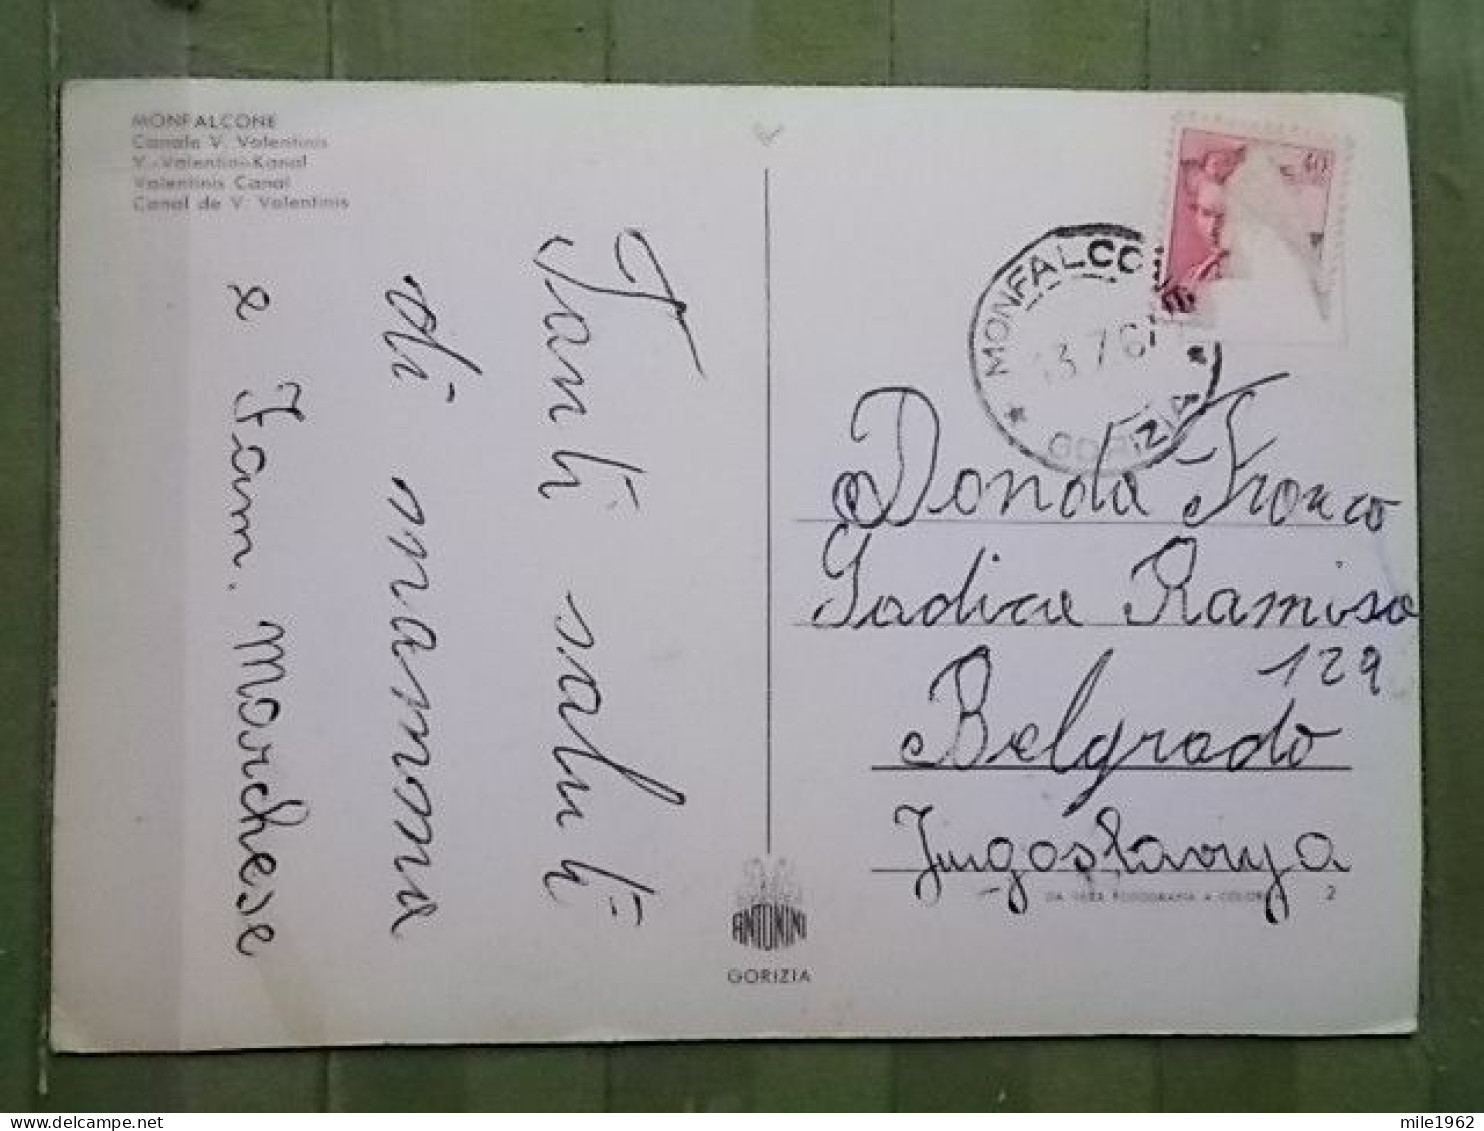 MONFALCONE
Canale V. Valentinis
V.-Valentini-Kanal
Valentinis Canal
Canal de V. Valentinis
Tanti saluti
di mamma
e Fam. Marchese
40
MONFALCO
13.7.6
GORIZIA
Donda Franco
Gadice Ramisa
129
Belgrado
Jugoslavuya
DA VERA FOTOGRAFIA A COLORI
2
ANTONINI
GORIZIA
mile1962